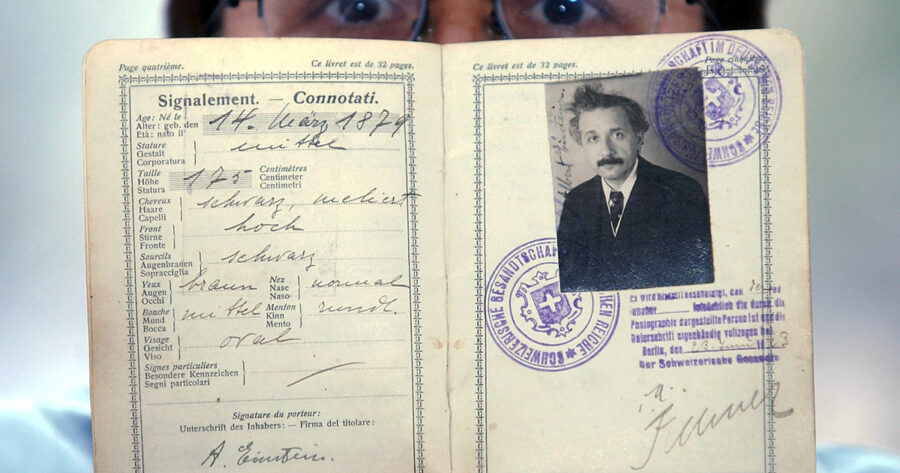 Page quatrième. Ce livret est de 32 pages.
Signalement. — Connotati.
Age: Né le
Alter: geb. den 14. März 1879
Età: nato il
Stature
Gestalt mittel
Corporatura
Taille Centimètres
Höhe 175 Centimeter
Statura Centimetri
Cheveux
Haare schwarz, meliert
Capelli
Front
Stirne hoch
Fronte
Sourcils
Augenbrauen schwarz
Sopracciglia
Yeux Nez
Augen braun Nase normal
Occhi Naso
Bouche Menton
Mund mittel Kinn rundl.
Bocca Mento
Visage
Gesicht oval
Viso
Signes particuliers
Besondere Kennzeichen
Segni particolari
Signature du porteur:
Unterschrift des Inhabers: — Firma del titolare:
A. Einstein.
Ce livret est de 32 pages. Page
SCHWEIZERISCHE
SCHAFT IM DEUTSCHEN REICHE
SCHWEIZERISCHE GESANDTSCHAFT
MEN REICHE
Es wird hiermit bescheinigt, dass
Inhaber tatsächlich die durch die
Photographie dargestellte Person ist und die
Unterschrift eigenhändig vollzogen hat
Berlin, den Juni 1923
Der Schweizerische Gesandte